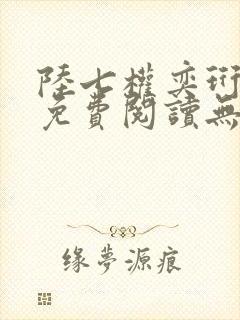 陸七權奕珩
免費閱讀無
緣夢源痕